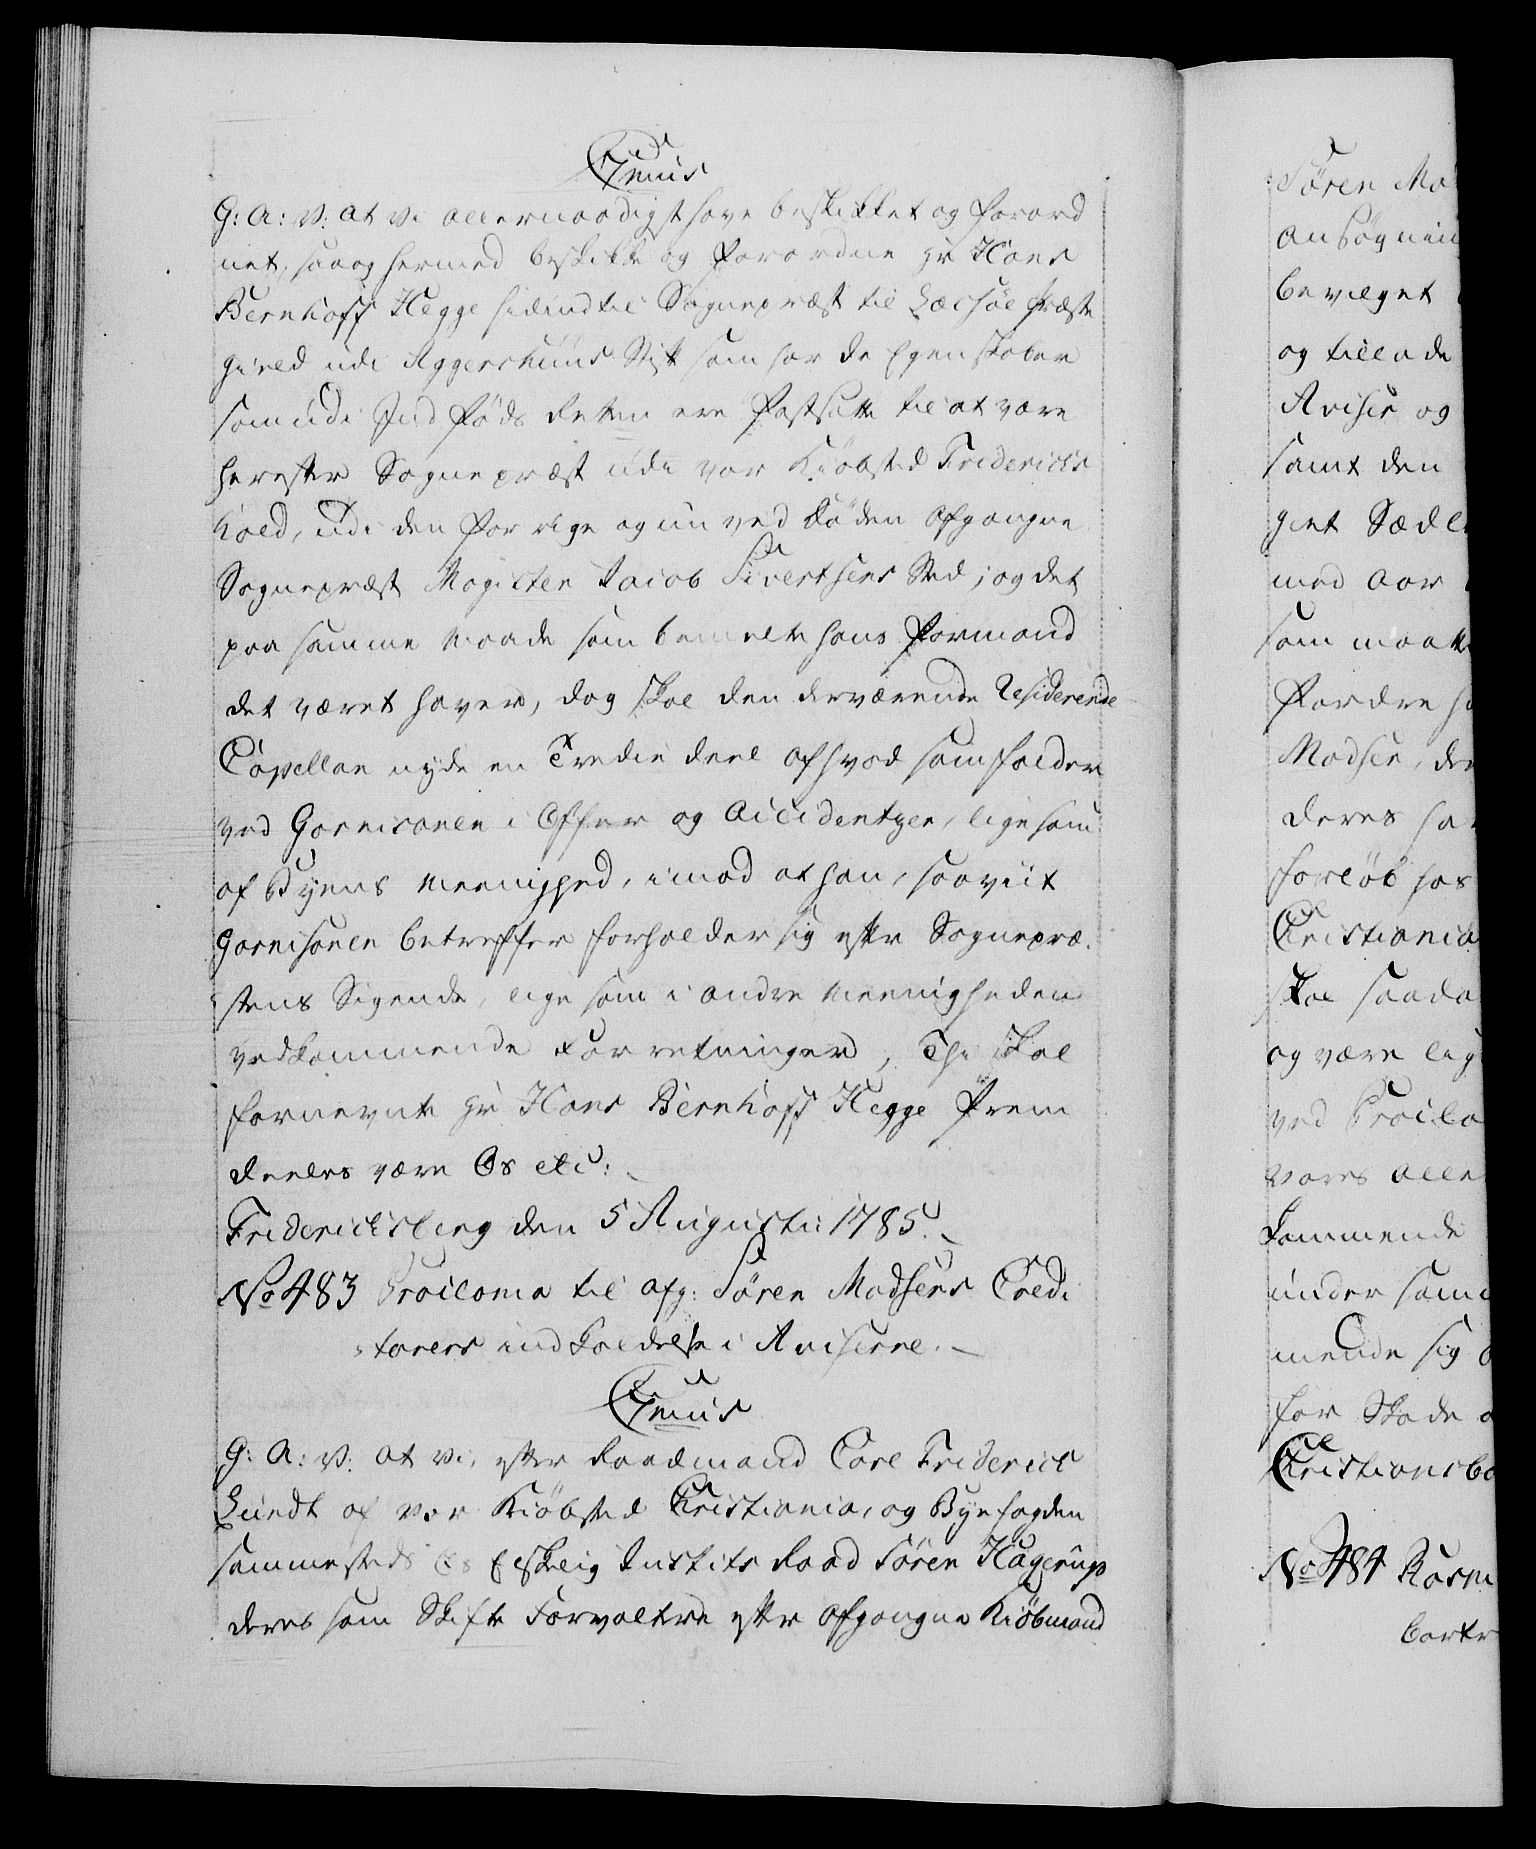 C7mus
G: A: V: at vi allernaadigst have beskikket og forord
net, saa og hermed beskikke og forordne Hr Hans
Bernhoff Hegge hidindtil Sognepræst til Læsøe Præste
gield udi Aggershuus Stift som har de Egenskaber
som udi Indføds Retten ere fastsatte til at være
herefter Sognepræst udi vor Kiöbsted Friderichs
hald, udi den forrige og nu ved Döden afgangne
Sognepræst Magister Jacob Sivertsens Sted; og det
paa samme Maade som bemelte hans Formand
det været haver, dog skal den derværende Residerende
Capellan nyde en Tredie deel af hvad som falder
ved Garnisonen i Offer og Accidentzer, ligesom
af Byens Meenighed, imod at han, saaviit
Garnisonen betreffer forholder sig efter Sognepræ-
stens Sigende, lige som i andre Meenigheden
vedkommende Forretninger, Thi skal
fornevnte Hr Hans Bernhoff Hegge frem
deeles være Os etc:
Friderichsberg den 5 Augusti 1785.
No 483 Proclama til afg: Sören Madsens Credi
torers indkaldelse i Aviserne.
C7mus
G: A: V: at vi, efter Raadmand Carl Friderich
Lundt af vor Kiöbsted Christiania, og Byefogden
sammesteds Os Elskelig Justits Raad Sören Hagerup
deres som Skifte Forvaltere efter afgangne Kiöbmand
Sören Ma
Ansögnin
bevilget
og tillade
Aviser og
samt den
giet Sædl
med Aar
som maatte
fordre h
Madsen, de
deres ha
forlöb has
Christiania
skal saada
og være lig
ved Procla
vores alle
kommende
under sam
mende sig
for Skade
Christiansbo
No 484 Rasm
bortr